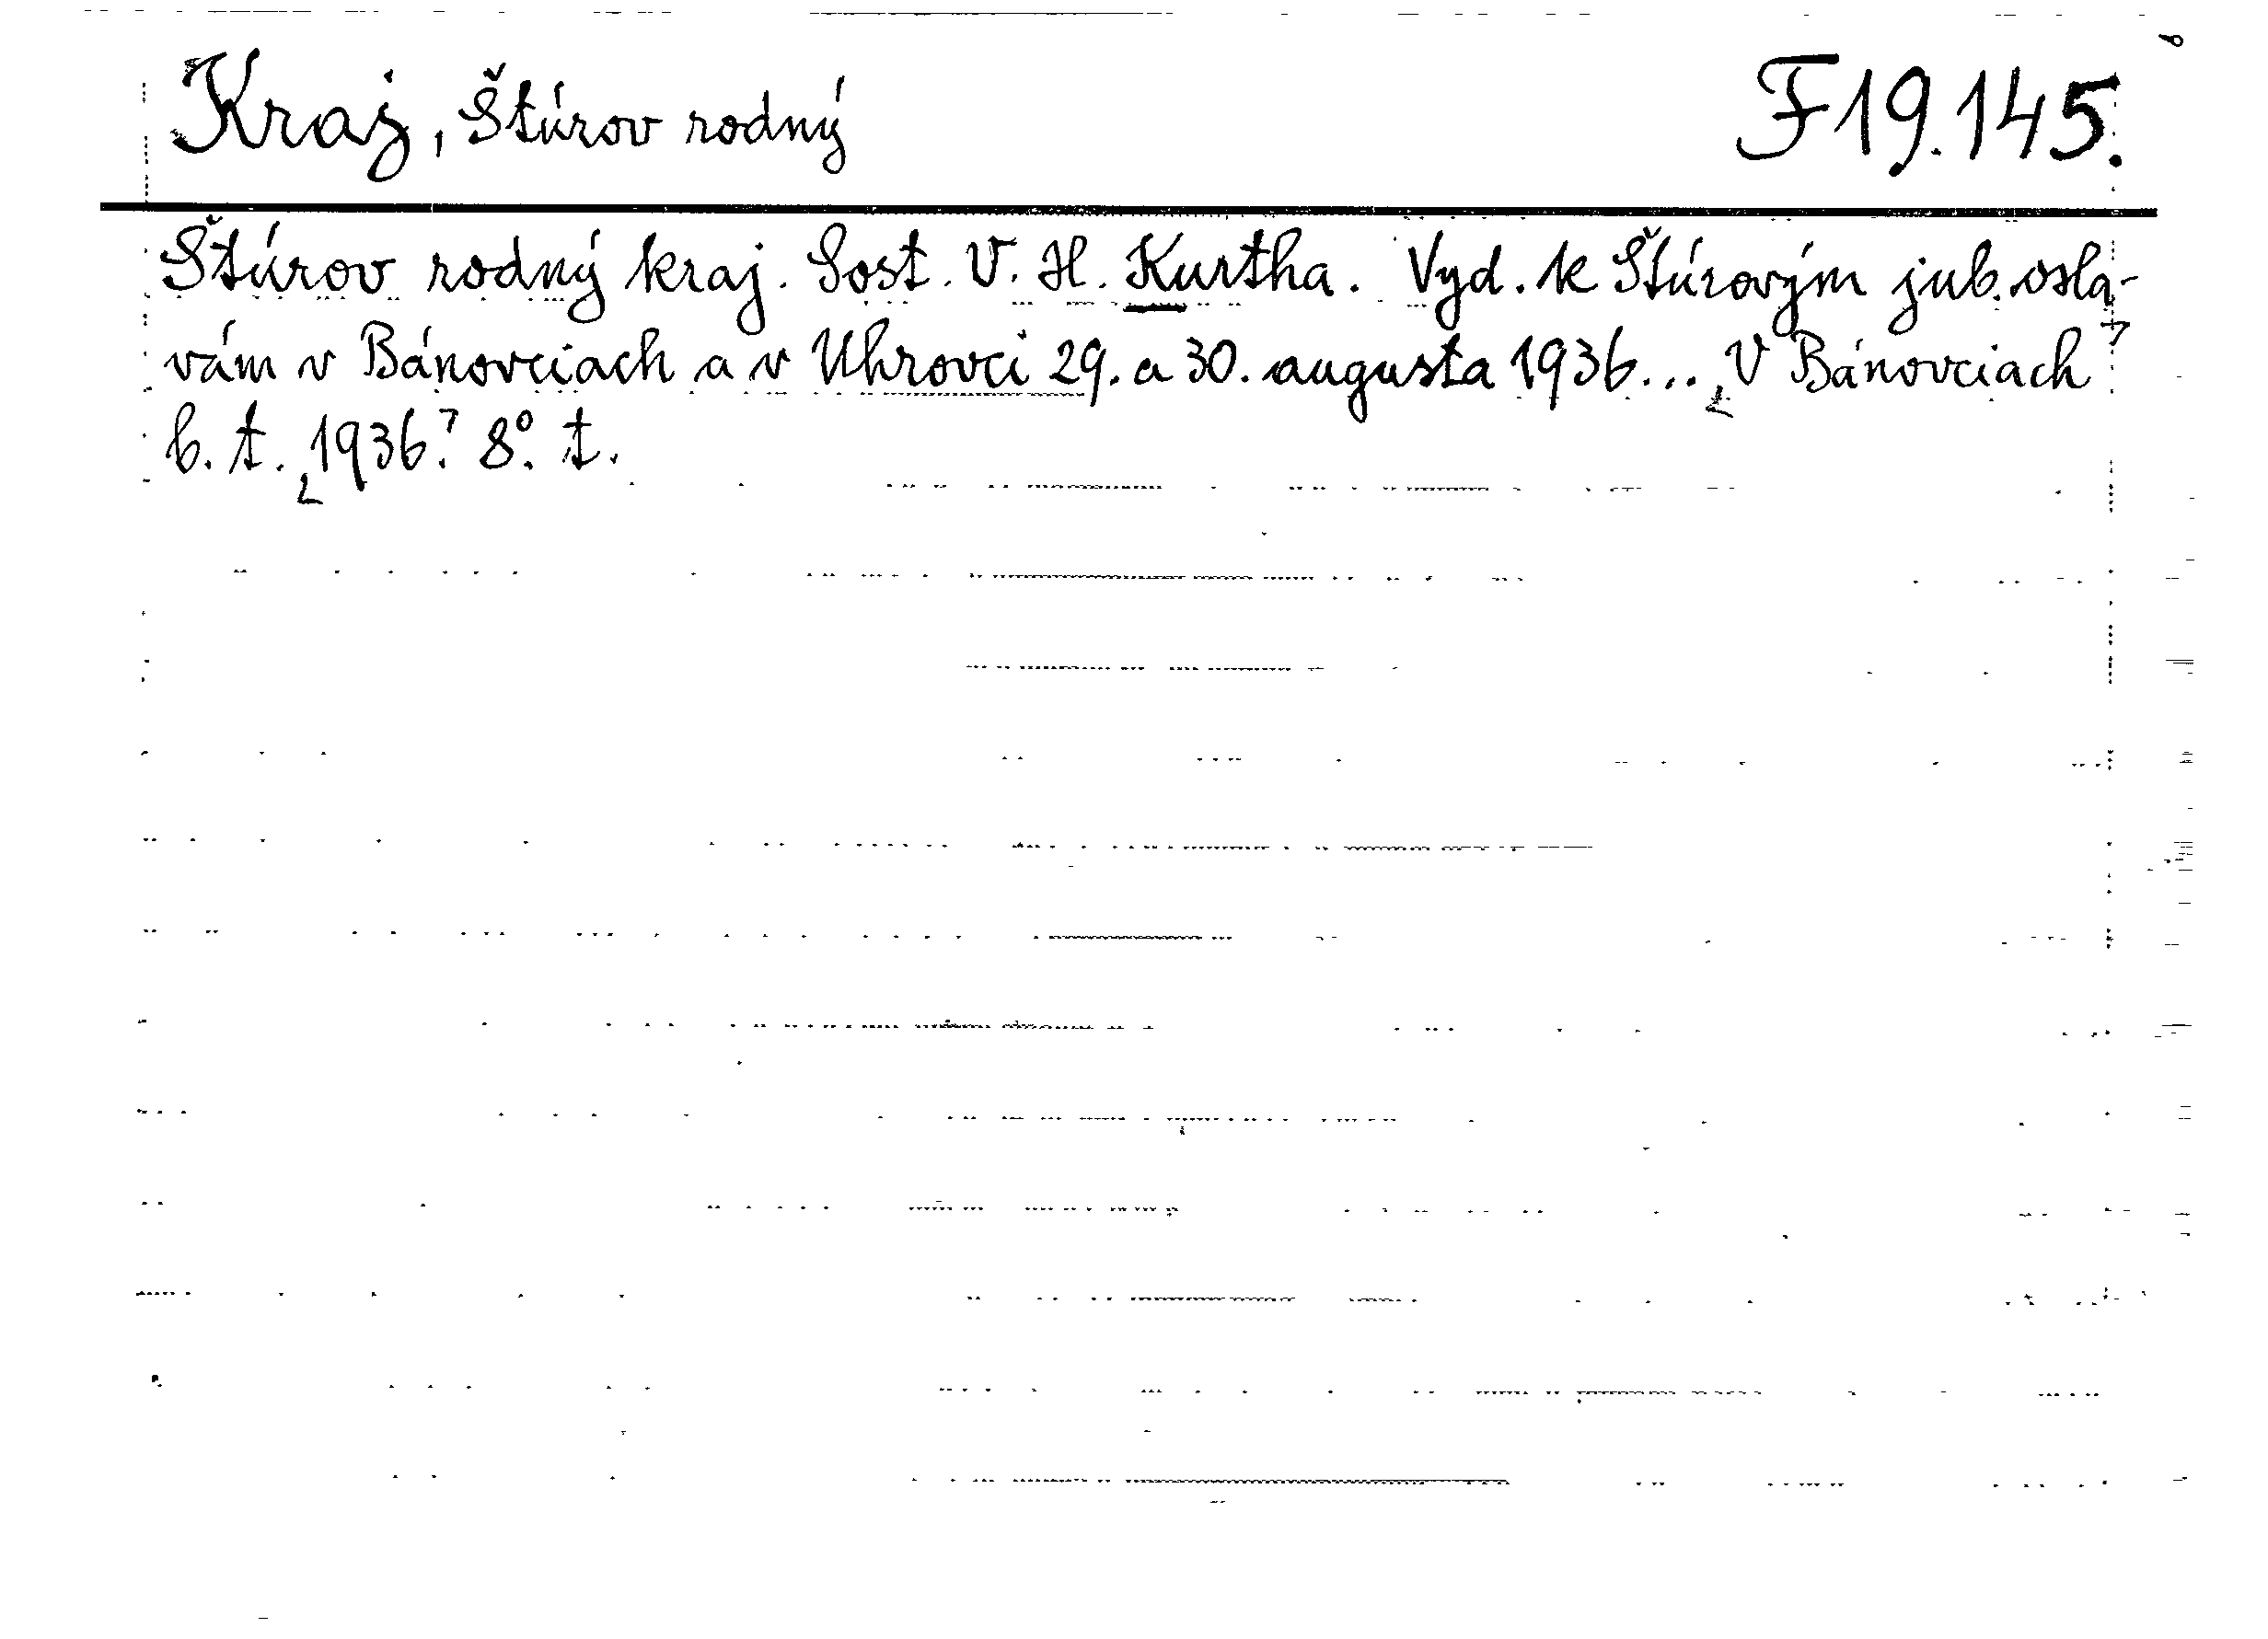 Kraj, Štúrov rodný F19.145.
Štúrov rodný kraj. Sost. V. H. Kurtha. Vyd. k Štúrovým jub. osla-
vám v Bánovciach a v Uhrovci 29. a 30. augusta 1936... [V Bánovciach]
b. t. [1936.] 8°. t.